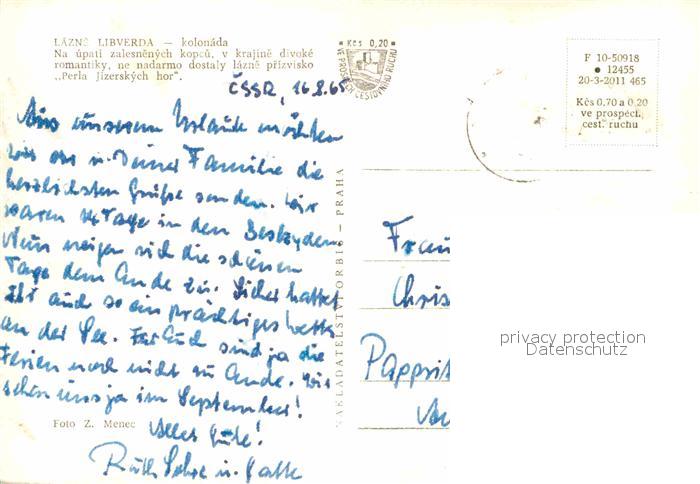 LÁZNĚ LIBVERDA — kolonáda
Na úpatí zalesněných kopců, v krajině divoké
romantiky, ne nadarmo dostaly lázně přízvisko
„Perla Jizerských hor".
ČSSR, 16.8.65
Aus unserem Urlaub möchten
wir Dir u. Deiner Familie die
herzlichsten Grüße senden. Wir
waren 14 Tage in den Beskyden.
Nun neigen sich die schönen
Tage dem Ende zu. Sicher hattet
Ihr auch so ein prächtiges Wetter
an der See. Für Euch sind ja die
Ferien noch nicht zu Ende. Wir
sehen uns ja im September!
Alles Gute!
Ruth u. Gatte
Foto Z. Menec
NAKLADATELSTVÍ ORBIS — PRAHA
Kčs 0,20
VE PROSPĚCH CESTOVNÍHO RUCHU
F 10-50918
12455
20-3-2011 465
Kčs 0,70 a 0,20
ve prospěch
cest. ruchu
Frau
Chris
Pappri
privacy protection
Datenschutz